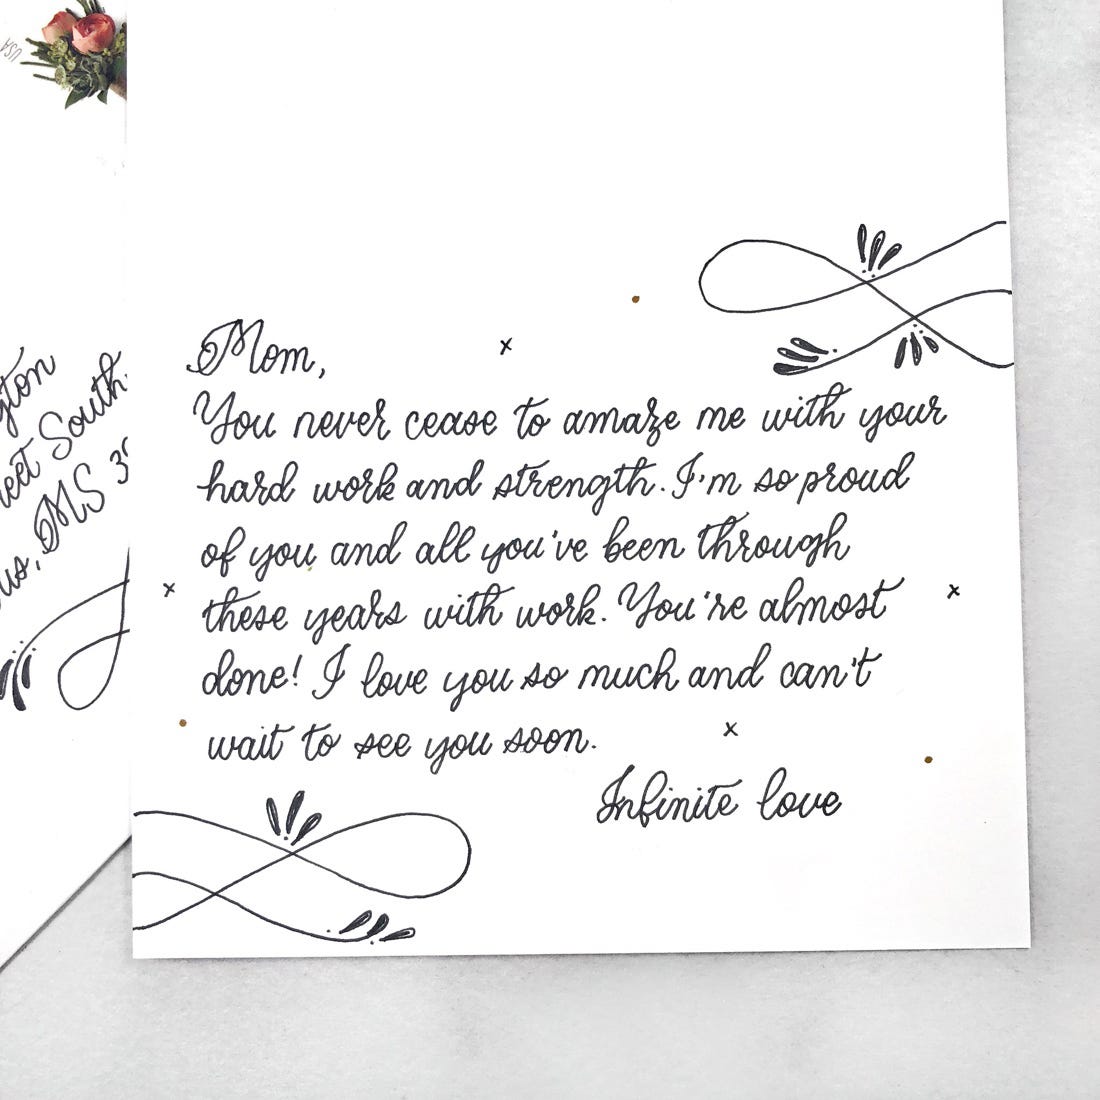 USA
Mom,
You never cease to amaze me with your
hard work and strength. I'm so proud
of you and all you've been through
these years with work. You're almost
done! I love you so much and can't
wait to see you soon.
Infinite love
South
MS